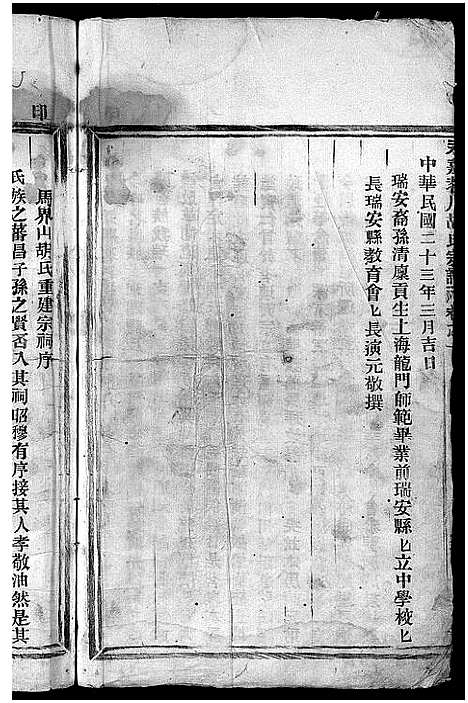 中華民國二十三年三月吉日
瑞安裔孫清廩貢生上海龍門師範畢業前瑞安縣乜立中學校乜
長瑞安縣教育會乜長演元敬撰
印
馬界山胡氏重建宗祠序
氏族之蕃昌子孫之賢否入其祠昭穆有序接其人孝敬油然是其